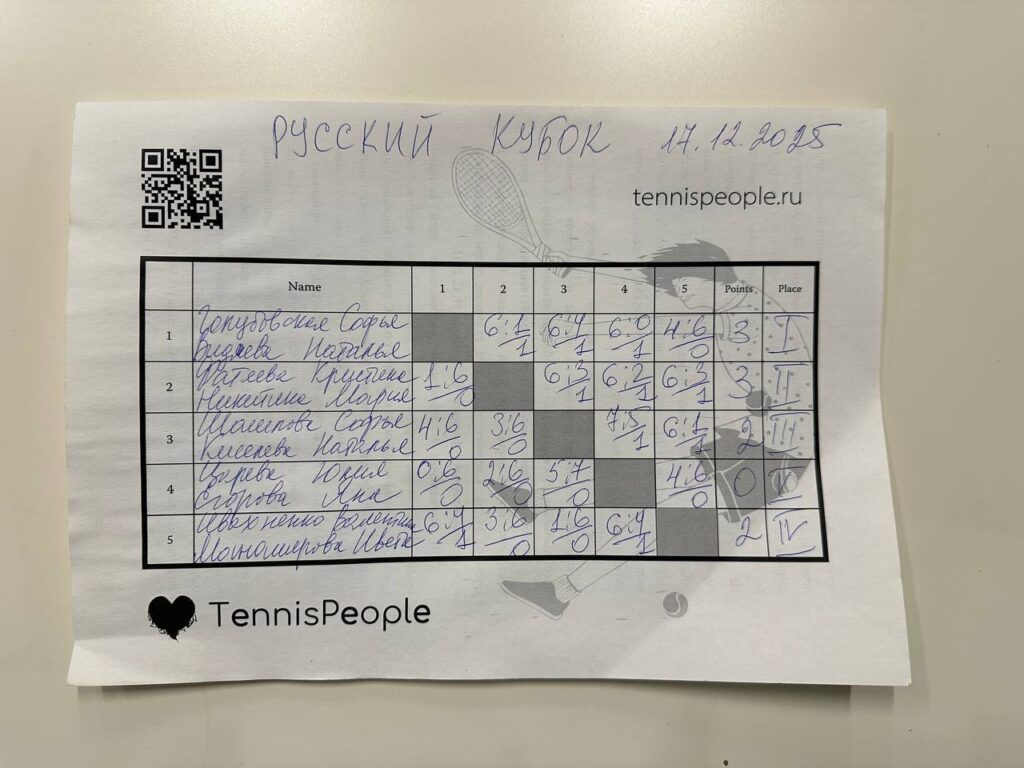 РУССКИЙ КУБОК 17.12.2025
tennispeople.ru
Name 1 2 3 4 5 Points Place
1 Голубовская Софья 6:1 6:4 6:0 4:6 3 I
Наталья 1 1 1 0
2 Фатеева Кристина 1:6 6:3 6:2 6:3 3 II
Никитина Мария 0 1 1 1
3 Софья 4:6 3:6 7:5 6:1 2 III
Киселева Наталья 0 0 1 1
4 Царева Юлия 0:6 2:6 5:7 4:6 0
Егорова Яна 0 0 0 0
5 Ивахненко Валентина 6:4 3:6 1:6 6:4 2 IV
1 0 0 1
TennisPeople